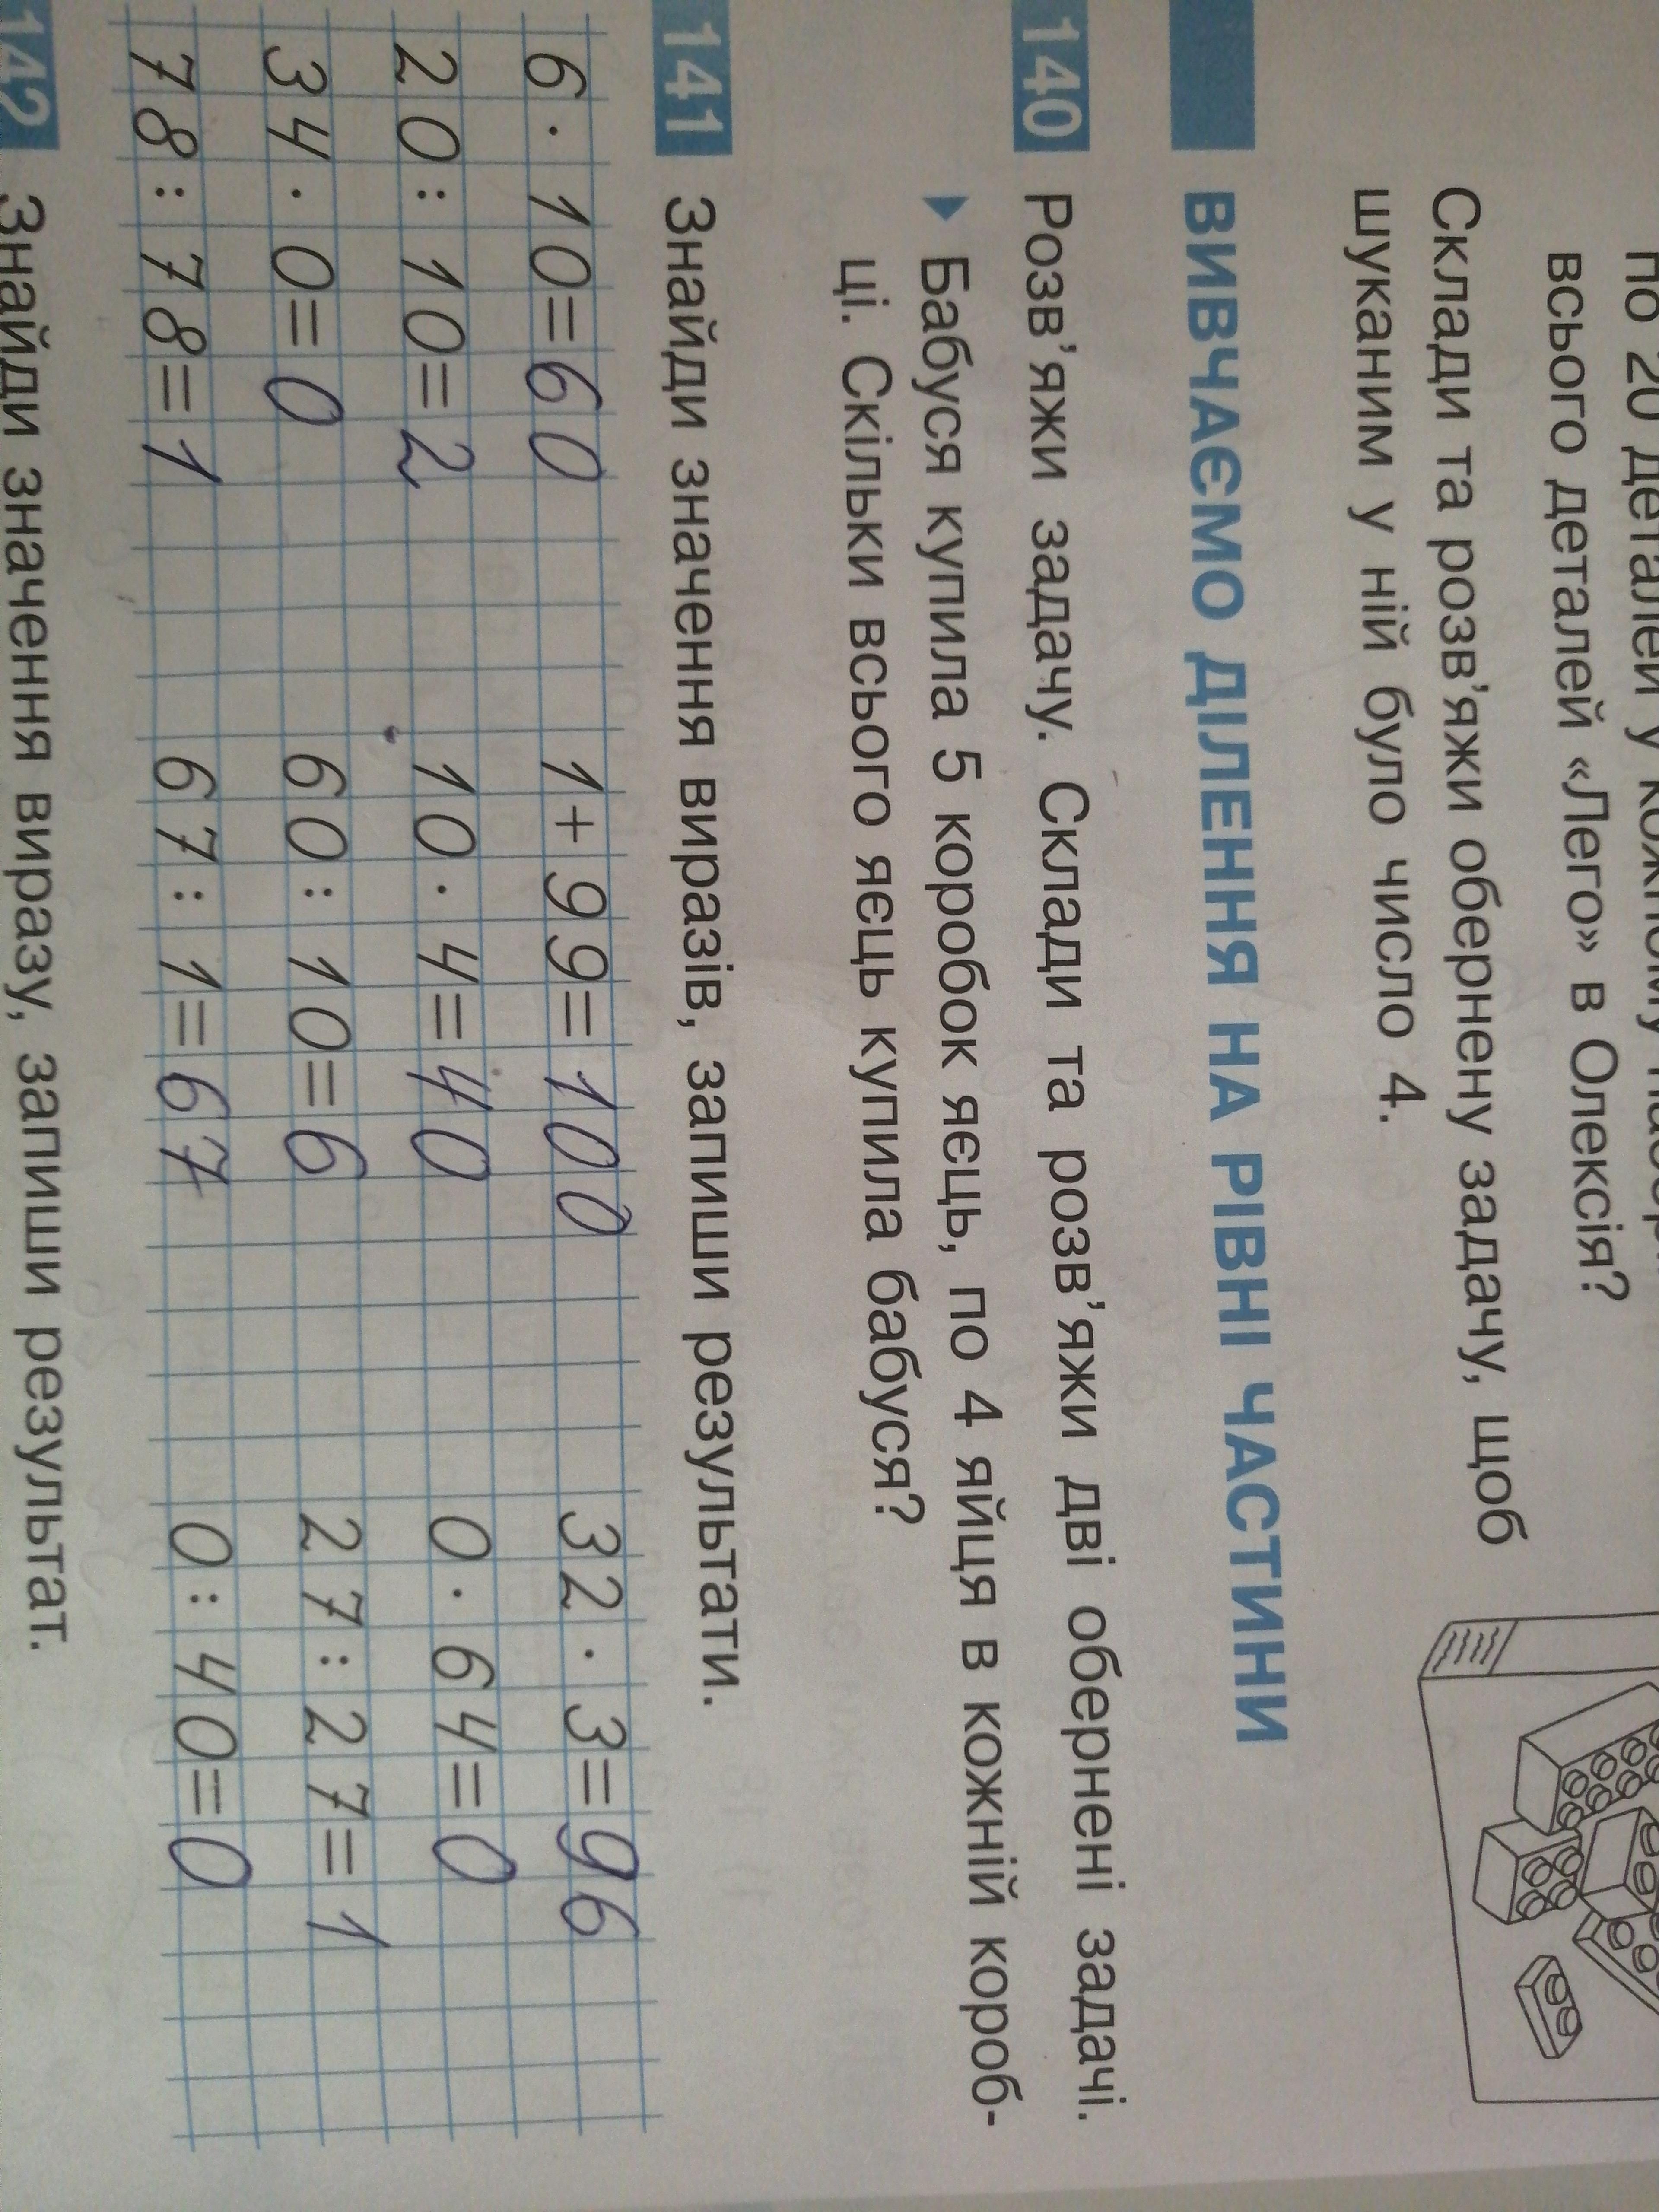 по 20 деталей у кожному
всього деталей «Лего» в Олексія?
Склади та розв’яжи обернену задачу, щоб
шуканим у ній було число 4.
ВИВЧАЄМО ДІЛЕННЯ НА РІВНІ ЧАСТИНИ
140 Розв’яжи задачу. Склади та розв’яжи дві обернені задачі.
Бабуся купила 5 коробок яєць, по 4 яйця в кожній короб-
ці. Скільки всього яєць купила бабуся?
141 Знайди значення виразів, запиши результати.
6 · 10 = 60 1 + 99 = 100 32 · 3 = 96
20 : 10 = 2 10 · 4 = 40 0 · 64 = 0
34 · 0 = 0 60 : 10 = 6 27 : 27 = 1
78 : 78 = 1 67 : 1 = 67 0 : 40 = 0
142 Знайди значення виразу, запиши результат.